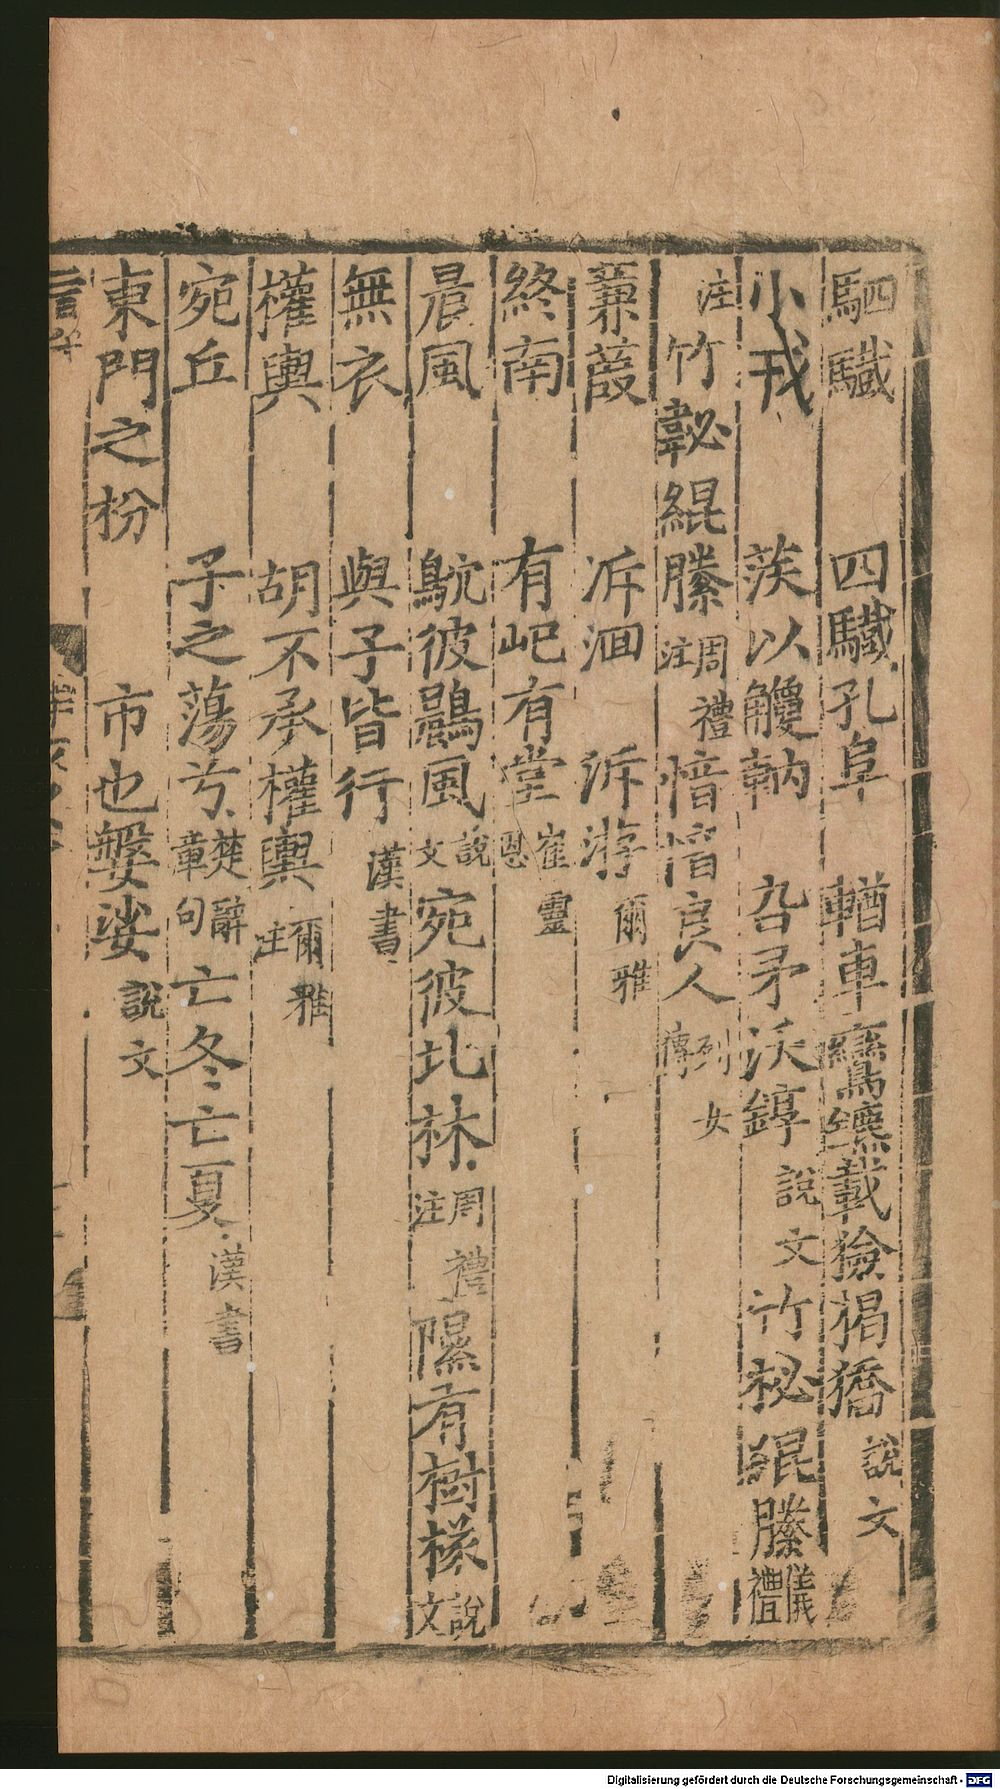 駟驖　四驖孔阜　輶車鸞鑣載獫猲獢說文
小戎　䒾以觼軜　厹矛沃錞說文竹柲緄縢儀禮
注竹䪐緄縢周禮注愔愔良人列女傳
蒹葭　泝洄　泝游爾雅
終南　有屺有堂崔靈恩
晨風　鴥彼鷐風說文宛彼北林周禮注隰有樹檖說文
無衣　與子皆行漢書
權輿　胡不承權輿爾雅注
宛丘　子之蕩兮楚辭章句亡冬亡夏漢書
東門之枌　市也媻娑說文
Digitalisierung gefördert durch die Deutsche Forschungsgemeinschaft - DFG